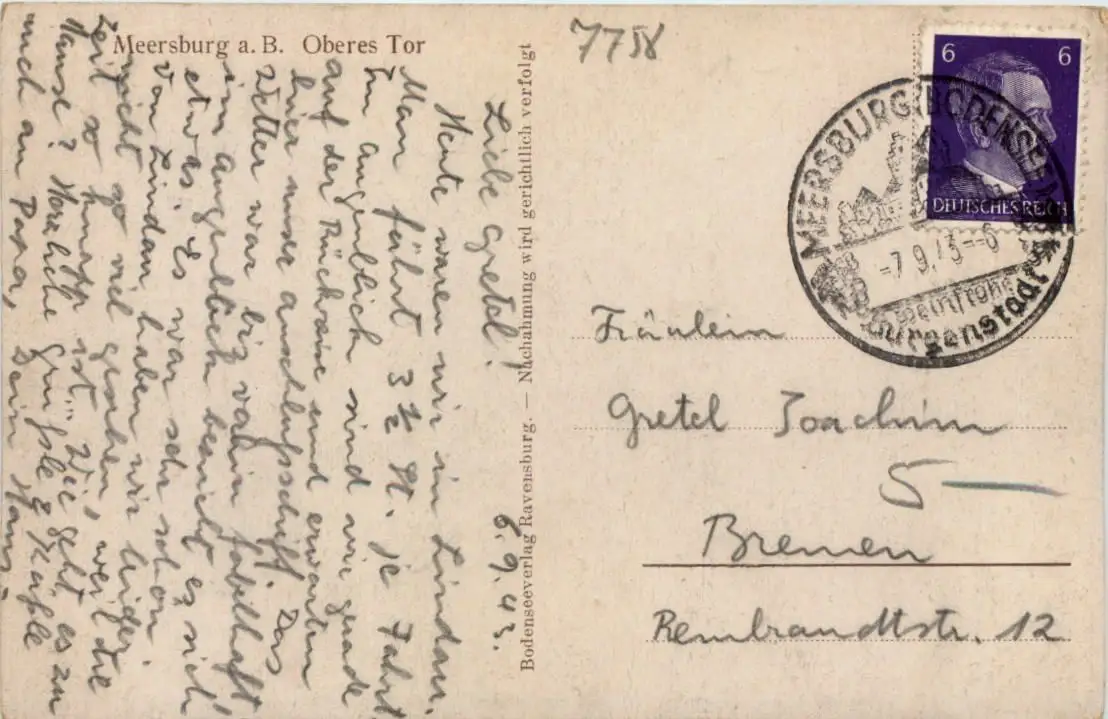 Meersburg a. B. Oberes Tor
6.9.43.
Liebe Gretel!
Heute waren wir in Lindau.
Man fährt 3 ½ St. je Fahrt
Im augenblick sind wir gerade
auf der Rückreise und erwarten
hier unser anschlußschiff. Das
Wetter war bis vorhin fabelhaft
im augenblick bewölkt es sich
etwas. Es war sehr schön.
Von Lindau haben wir leider
nicht so viel gesehen, weil die
Zeit so knapp ist. Wie geht es zu
Hause? Herzliche Grüße & Küße
auch an Papa, Dein Hans
Bodenseeverlag Ravensburg. — Nachahmung wird gerichtlich verfolgt
7758
6 6
DEUTSCHES REICH
MEERSBURG (BODENSEE)
-7.9.43--6
Burgenstadt
Fräulein
Gretel Joachim
5
Bremen
Rembrandtstr. 12